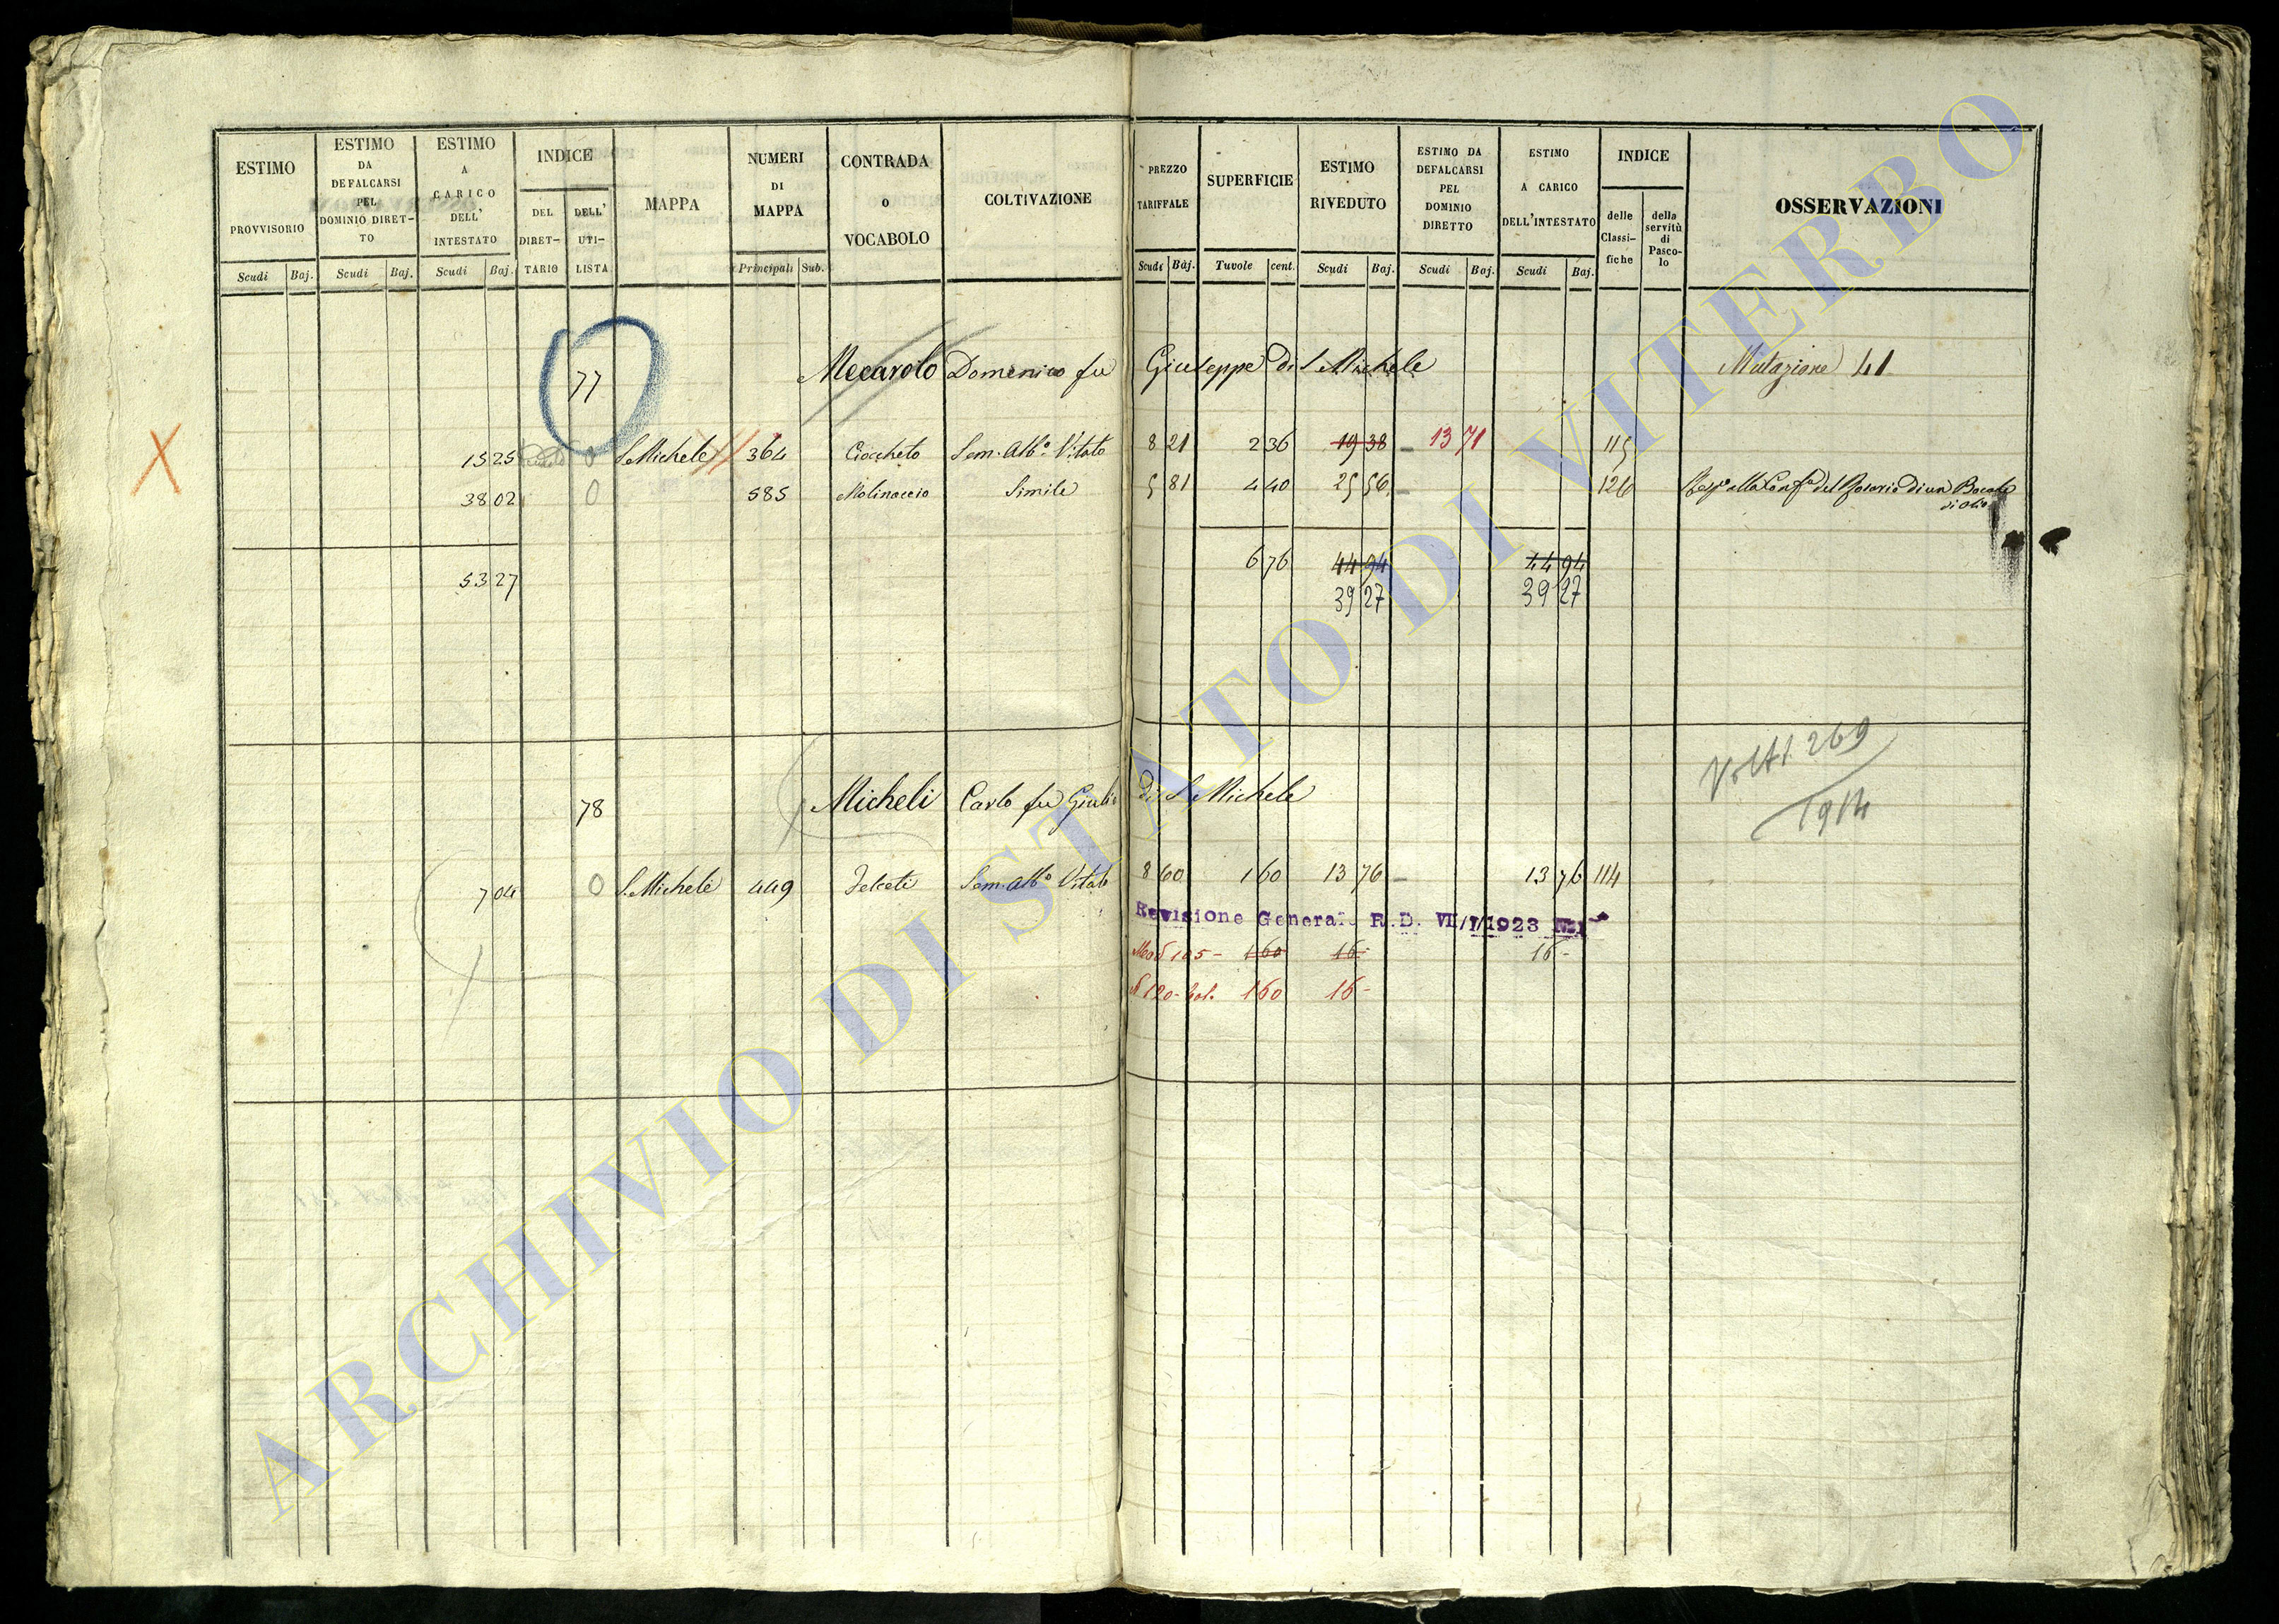 ESTIMO PROVVISORIO
ESTIMO DA DEFALCARSI PEL DOMINIO DIRET-TO
ESTIMO A CARICO DELL' INTESTATO
INDICE
DEL DIRET-TARIO
DELL' UTI-LISTA
MAPPA
NUMERI DI MAPPA
CONTRADA O VOCABOLO
COLTIVAZIONE
PREZZO TARIFFALE
SUPERFICIE
ESTIMO RIVEDUTO
ESTIMO DA DEFALCARSI PEL DOMINIO DIRETTO
ESTIMO A CARICO DELL'INTESTATO
INDICE
delle Classi-fiche
della servitù di Pasco-lo
OSSERVAZIONI
Scudi Baj. Scudi Baj. Scudi Baj. Principali Sub. Scudi Baj. Tavole cent. Scudi Baj. Scudi Baj. Scudi Baj.
77 Mecarolo Domenico fu Giuseppe di S. Michele Mutazione 41
15 25 0 S. Michele 364 Ciocheto Sem. Alb.o Vitato 8 21 2 36 19 38 13 71 115
38 02 0 585 Molinaccio Simile 5 81 4 40 25 56 126 alla Conf.a del Rosario di un Bocale di olio
6 76 44 94 44 94
53 27 39 27 39 27
78 Micheli Carlo fu Giulio di S. Michele
Volt 1. 269
1914
7 04 0 S. Michele 449 Sem. Alb.o Vitato 8 60 1 60 13 76 13 76 114
Revisione Generale R.D. VII/I/1923
Mod 105 - 1 60 16 - 16 -
N 120 - 1 60 16 -
ARCHIVIO DI STATO DI VITERBO